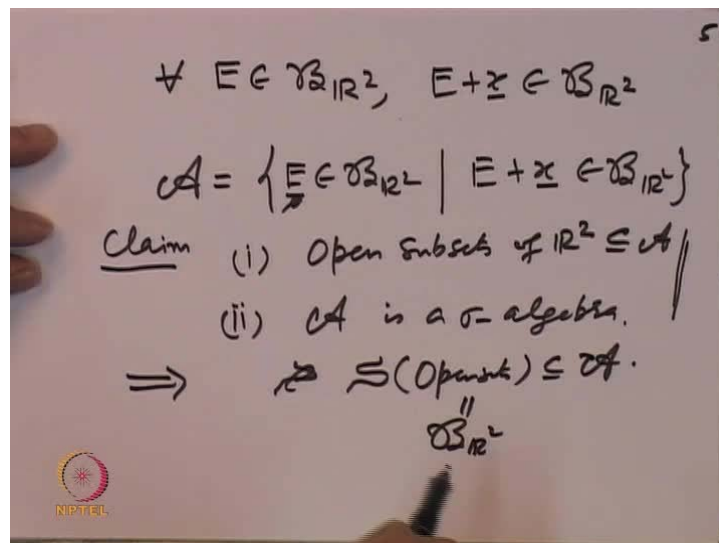 5
∀ E ∈ 𝓑_ℝ², E + x̲ ∈ 𝓑_ℝ²
𝒜 = { E ∈ 𝓑_ℝ² | E + x̲ ∈ 𝓑_ℝ² }
Claim (i) Open subsets of ℝ² ⊆ 𝒜
(ii) 𝒜 is a σ-algebra.
⟹ S(Opensets) ⊆ 𝒜.
||
𝓑_ℝ²
NPTEL